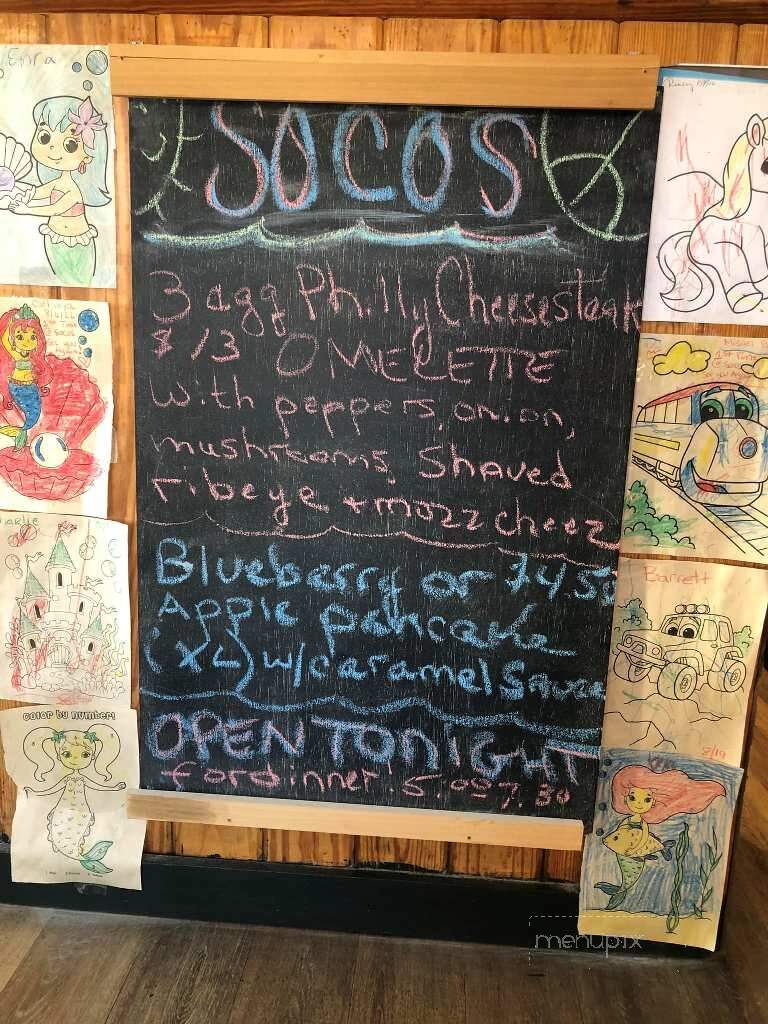 SOCOS
3 agg Philly Cheesesteak
$13 OMELETTE
with peppers, onion,
mushrooms, Shaved
ribeye + mozz cheez
Blueberry or $4.50
Apple pancake
(XL) w/caramel Sauce
OPEN TONIGHT
for dinner! 5:00 7:30
Charlie
COLOR BY NUMBER!
Barrett
8/19
menupix